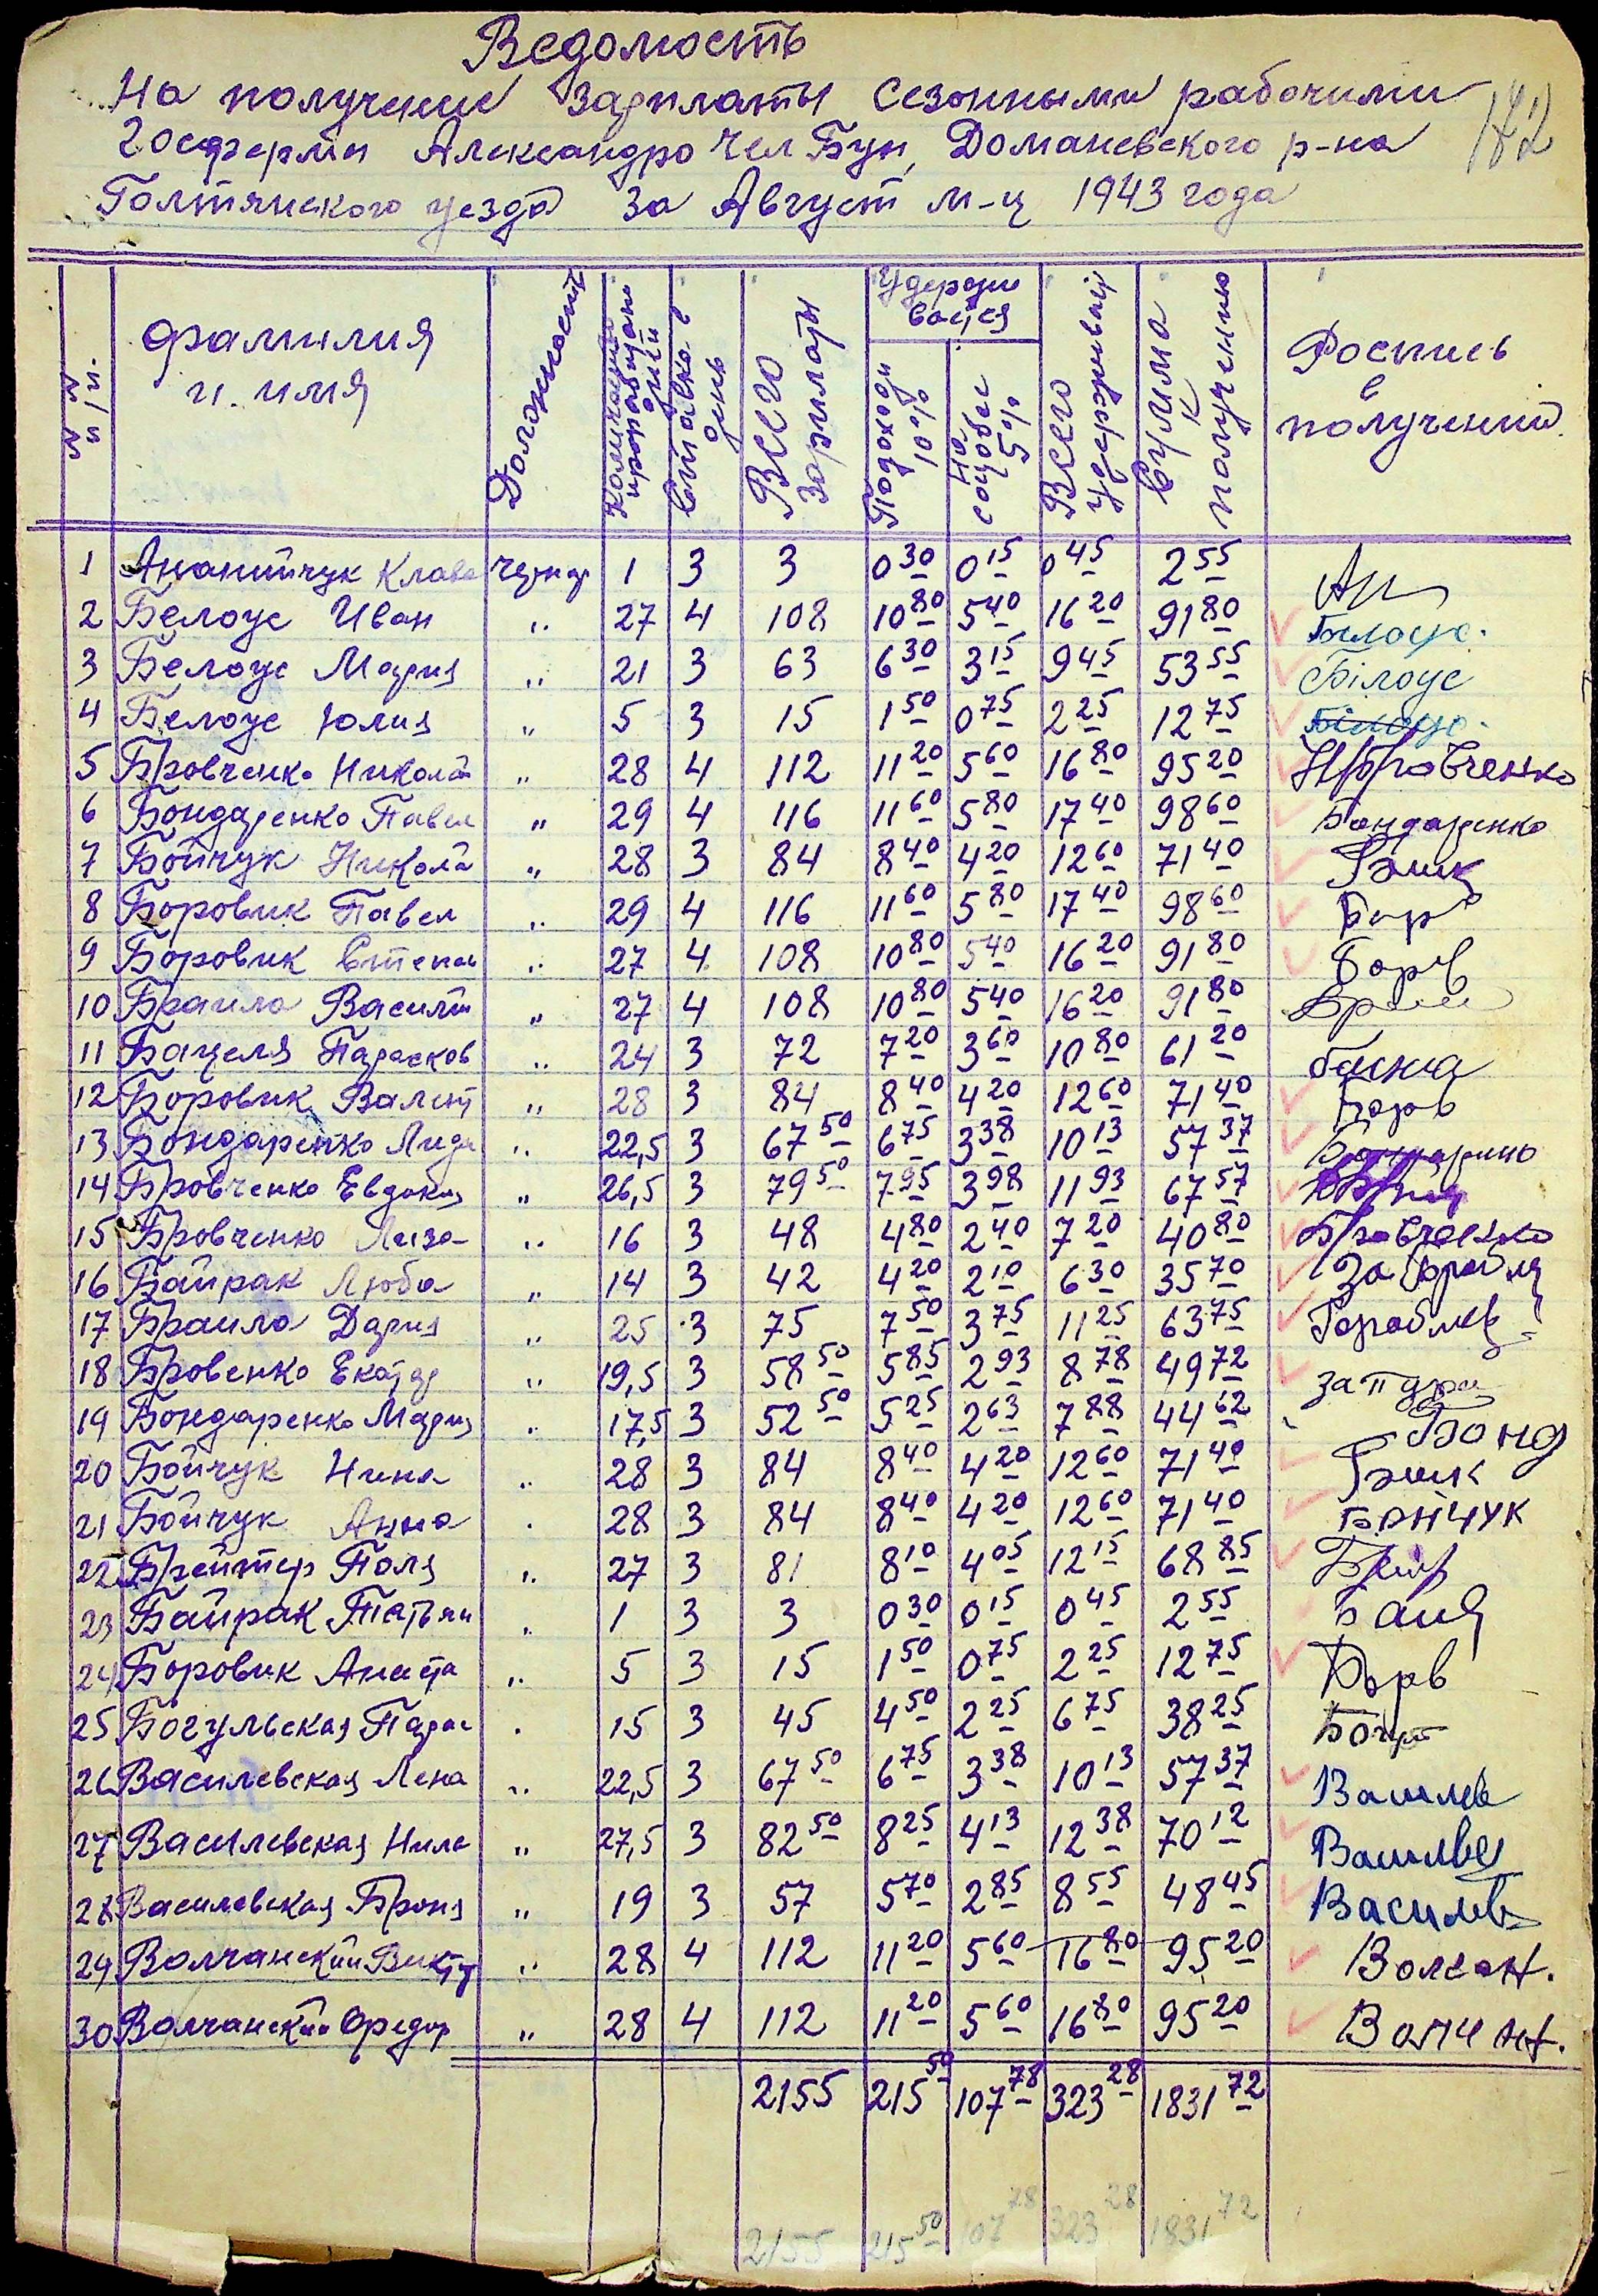 Ведомость
На получение зарплаты сезонными рабочими
Госфермы Александро Чел Бун, Доманевского р-на
Голтянского уезда за Август м-ц 1943 года
172
№№ п/п. Фамилия и. имя Должность Количество проработан дней Ставка в день Всего зарплаты Удержи вается Подоходн 10% На соцобес 5% Всего удерживать Сумма к получению Роспись в получении
1 Ананийчук Клава чернор 1 3 3 0 30 0 15 0 45 2 55 Ан
2 Белоус Иван " 27 4 108 10 80 5 40 16 20 91 80 Білоус.
3 Белоус Мария " 21 3 63 6 30 3 15 9 45 53 55 Білоус
4 Белоус Юлия " 5 3 15 1 50 0 75 2 25 12 75 Білоус.
5 Бровченко Николай " 28 4 112 11 20 5 60 16 80 95 20 НБровченко
6 Бондаренко Павел " 29 4 116 11 60 5 80 17 40 98 60 Бондаренко
7 Бойчук Никола " 28 3 84 8 40 4 20 12 60 71 40
8 Боровик Павел " 29 4 116 11 60 5 80 17 40 98 60 Бор
9 Боровик Степан " 27 4 108 10 80 5 40 16 20 91 80 Борв
10 Браила Василий " 27 4 108 10 80 5 40 16 20 91 80
11 Бацеля Парасков " 24 3 72 7 20 3 60 10 80 61 20
12 Боровик Валент " 28 3 84 8 40 4 20 12 60 71 40 Боров
13 Бондаренко Лида " 22,5 3 67 50 6 75 3 38 10 13 57 37
14 Бровченко Евдокия " 26,5 3 79 50 7 95 3 98 11 93 67 57
15 Бровченко Лиза " 16 3 48 4 80 2 40 7 20 40 80 Бровченко
16 Байрак Люба " 14 3 42 4 20 2 10 6 30 35 70 За
17 Браила Дария " 25 3 75 7 50 3 75 11 25 63 75
18 Бровенко Екатер " 19,5 3 58 50 5 85 2 93 8 78 49 72 за
19 Бондаренко Мария " 17,5 3 52 50 5 25 2 63 7 88 44 62 Бонд
20 Бойчук Нина " 28 3 84 8 40 4 20 12 60 71 40
21 Бойчук Анна " 28 3 84 8 40 4 20 12 60 71 40 БОЙЧУК
22 Брейтер Поля " 27 3 81 8 10 4 05 12 15 68 85
23 Байрак Татьян " 1 3 3 0 30 0 15 0 45 2 55
24 Боровик Анаста " 5 3 15 1 50 0 75 2 25 12 75 Борв
25 Богульская Парас " 15 3 45 4 50 2 25 6 75 38 25
26 Василевская Лена " 22,5 3 67 50 6 75 3 38 10 13 57 37 Василев
27 Василевская Нила " 27,5 3 82 50 8 25 4 13 12 38 70 12 Василев
28 Василевская Броня " 19 3 57 5 70 2 85 8 55 48 45 Василев
29 Волчанский Виктор " 28 4 112 11 20 5 60 16 80 95 20 Волчан.
30 Волчанский Федор " 28 4 112 11 20 5 60 16 80 95 20 Волчан.
2155 215 50 107 78 323 28 1831 72
2155 215 50 107 78 323 28 1831 72